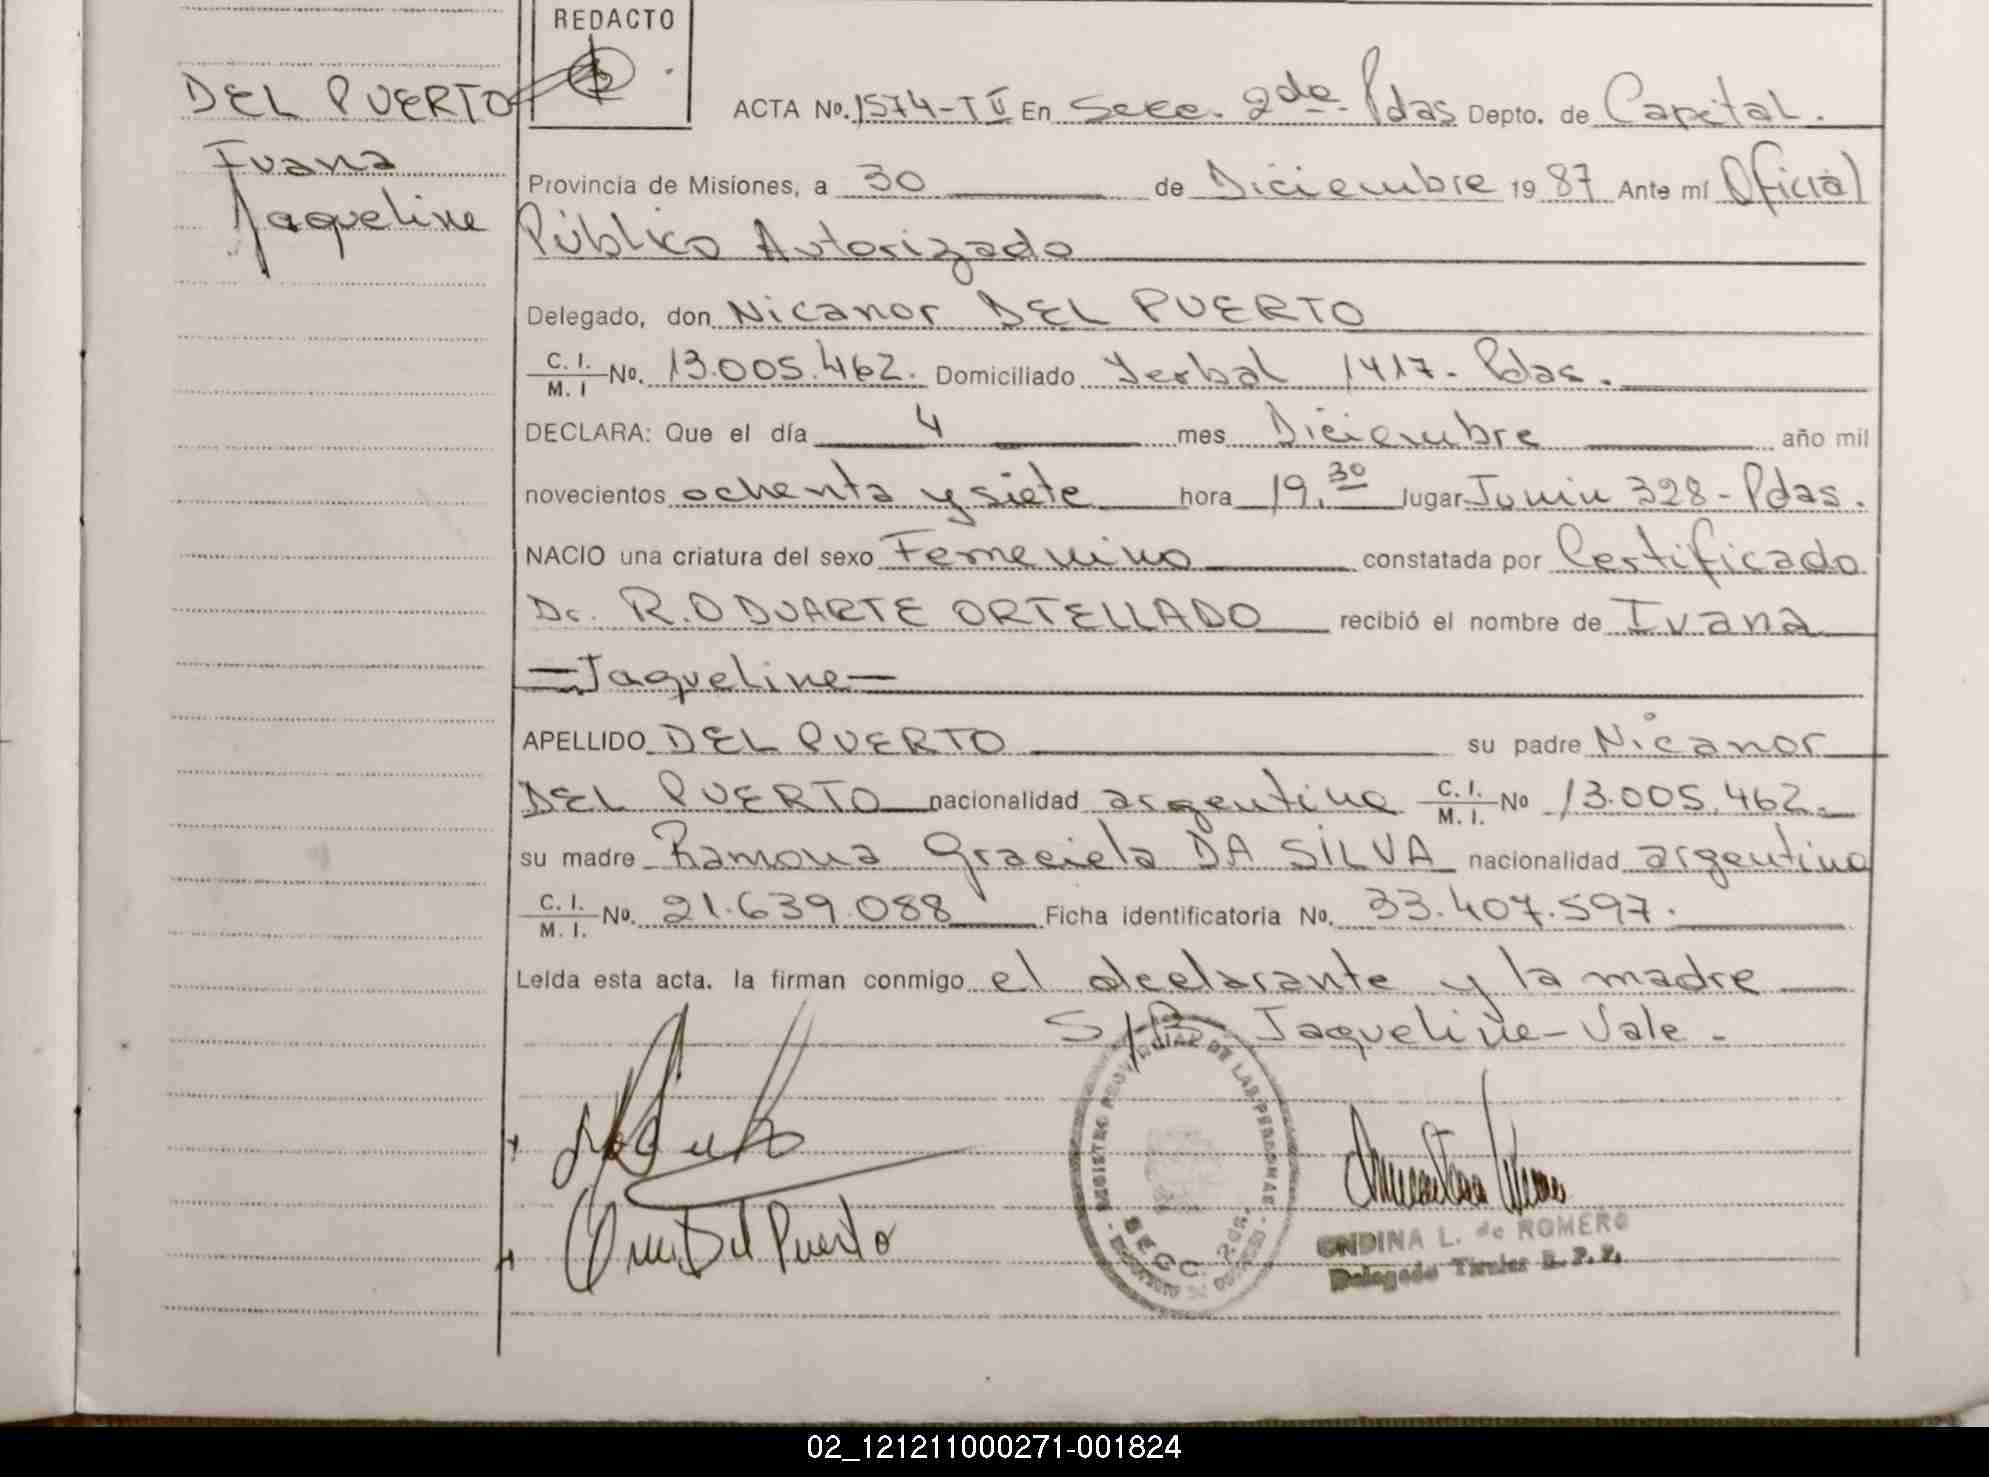 REDACTO
DEL PUERTO
Ivana
Jaqueline
ACTA No. 1574-T V En Secc. 2da. Pdas Depto. de Capital.
Provincia de Misiones, a 30 de Diciembre 19 87 Ante mí Oficial
Público Autorizado
Delegado, don Nicanor DEL PUERTO
C. I. / M. I No. 13.005.462. Domiciliado Yerbal 1417- Pdas.
DECLARA: Que el día 4 mes Diciembre año mil
novecientos ochenta y siete hora 19,30 lugar Junin 328 - Pdas.
NACIO una criatura del sexo Femenino constatada por Certificado
Dr. R.O DUARTE ORTELLADO recibió el nombre de Ivana
=Jaqueline—
APELLIDO DEL PUERTO su padre Nicanor
DEL PUERTO nacionalidad argentina C. I. / M. I. No 13.005.462.
su madre Ramona Graciela DA SILVA nacionalidad argentina
C. I. / M. I. No. 21.639.088 Ficha identificatoria No. 33.407.597.
Leída esta acta. la firman conmigo el declarante y la madre
S/B Jaqueline - Vale -
REGISTRO PROVINCIAL DE LAS PERSONAS
SECC. 2da.
Del Puerto
ONDINA L. de ROMERO
Delegado Titular R. P. P.
02_121211000271-001824